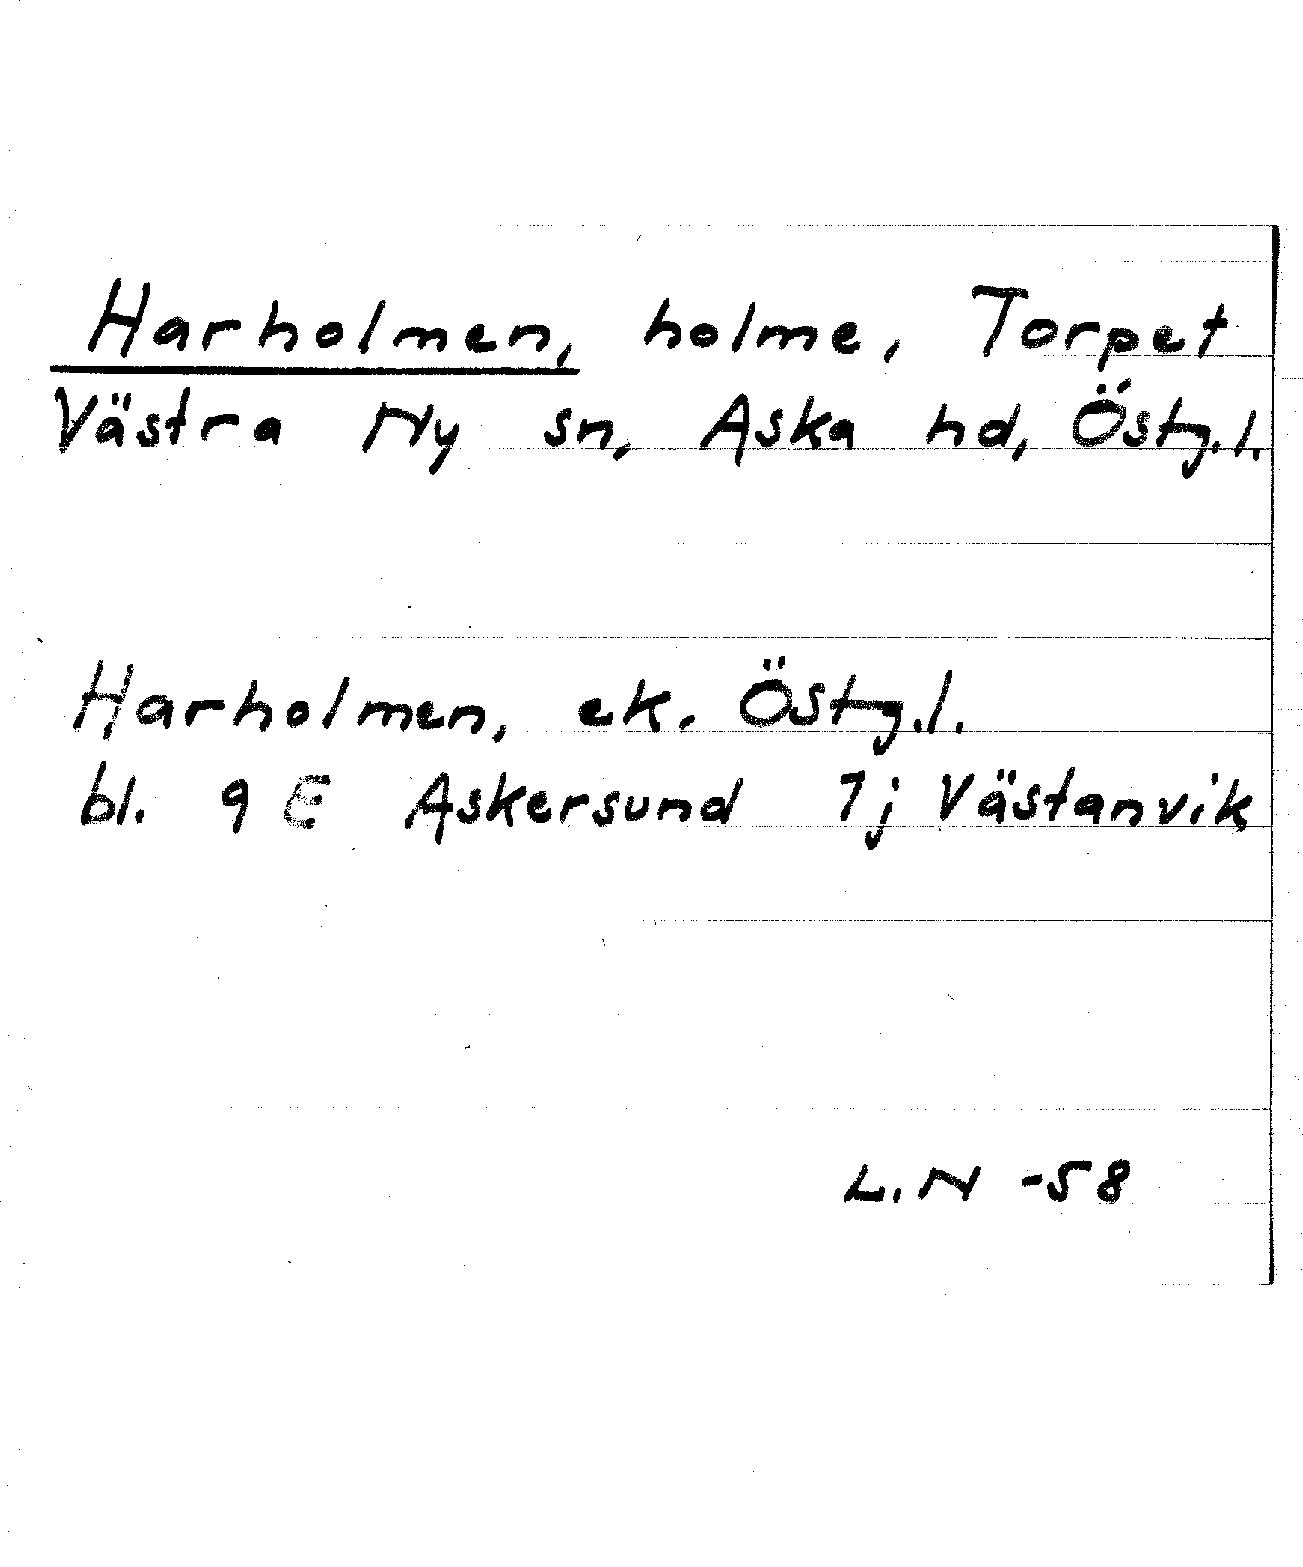 Harholmen, holme, Torpet
Västra Ny sn, Aska hd, Östg.l.
Harholmen, ek. Östg.l.
bl. 9 E Askersund 7j Västanvik
L.N -58